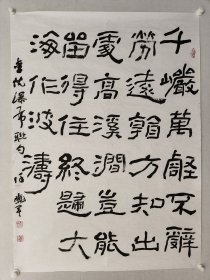 千巖萬壑不辭
勞遠看方知出
處高溪澗豈能
留得住終歸大
海作波濤
忱瀑布聯句